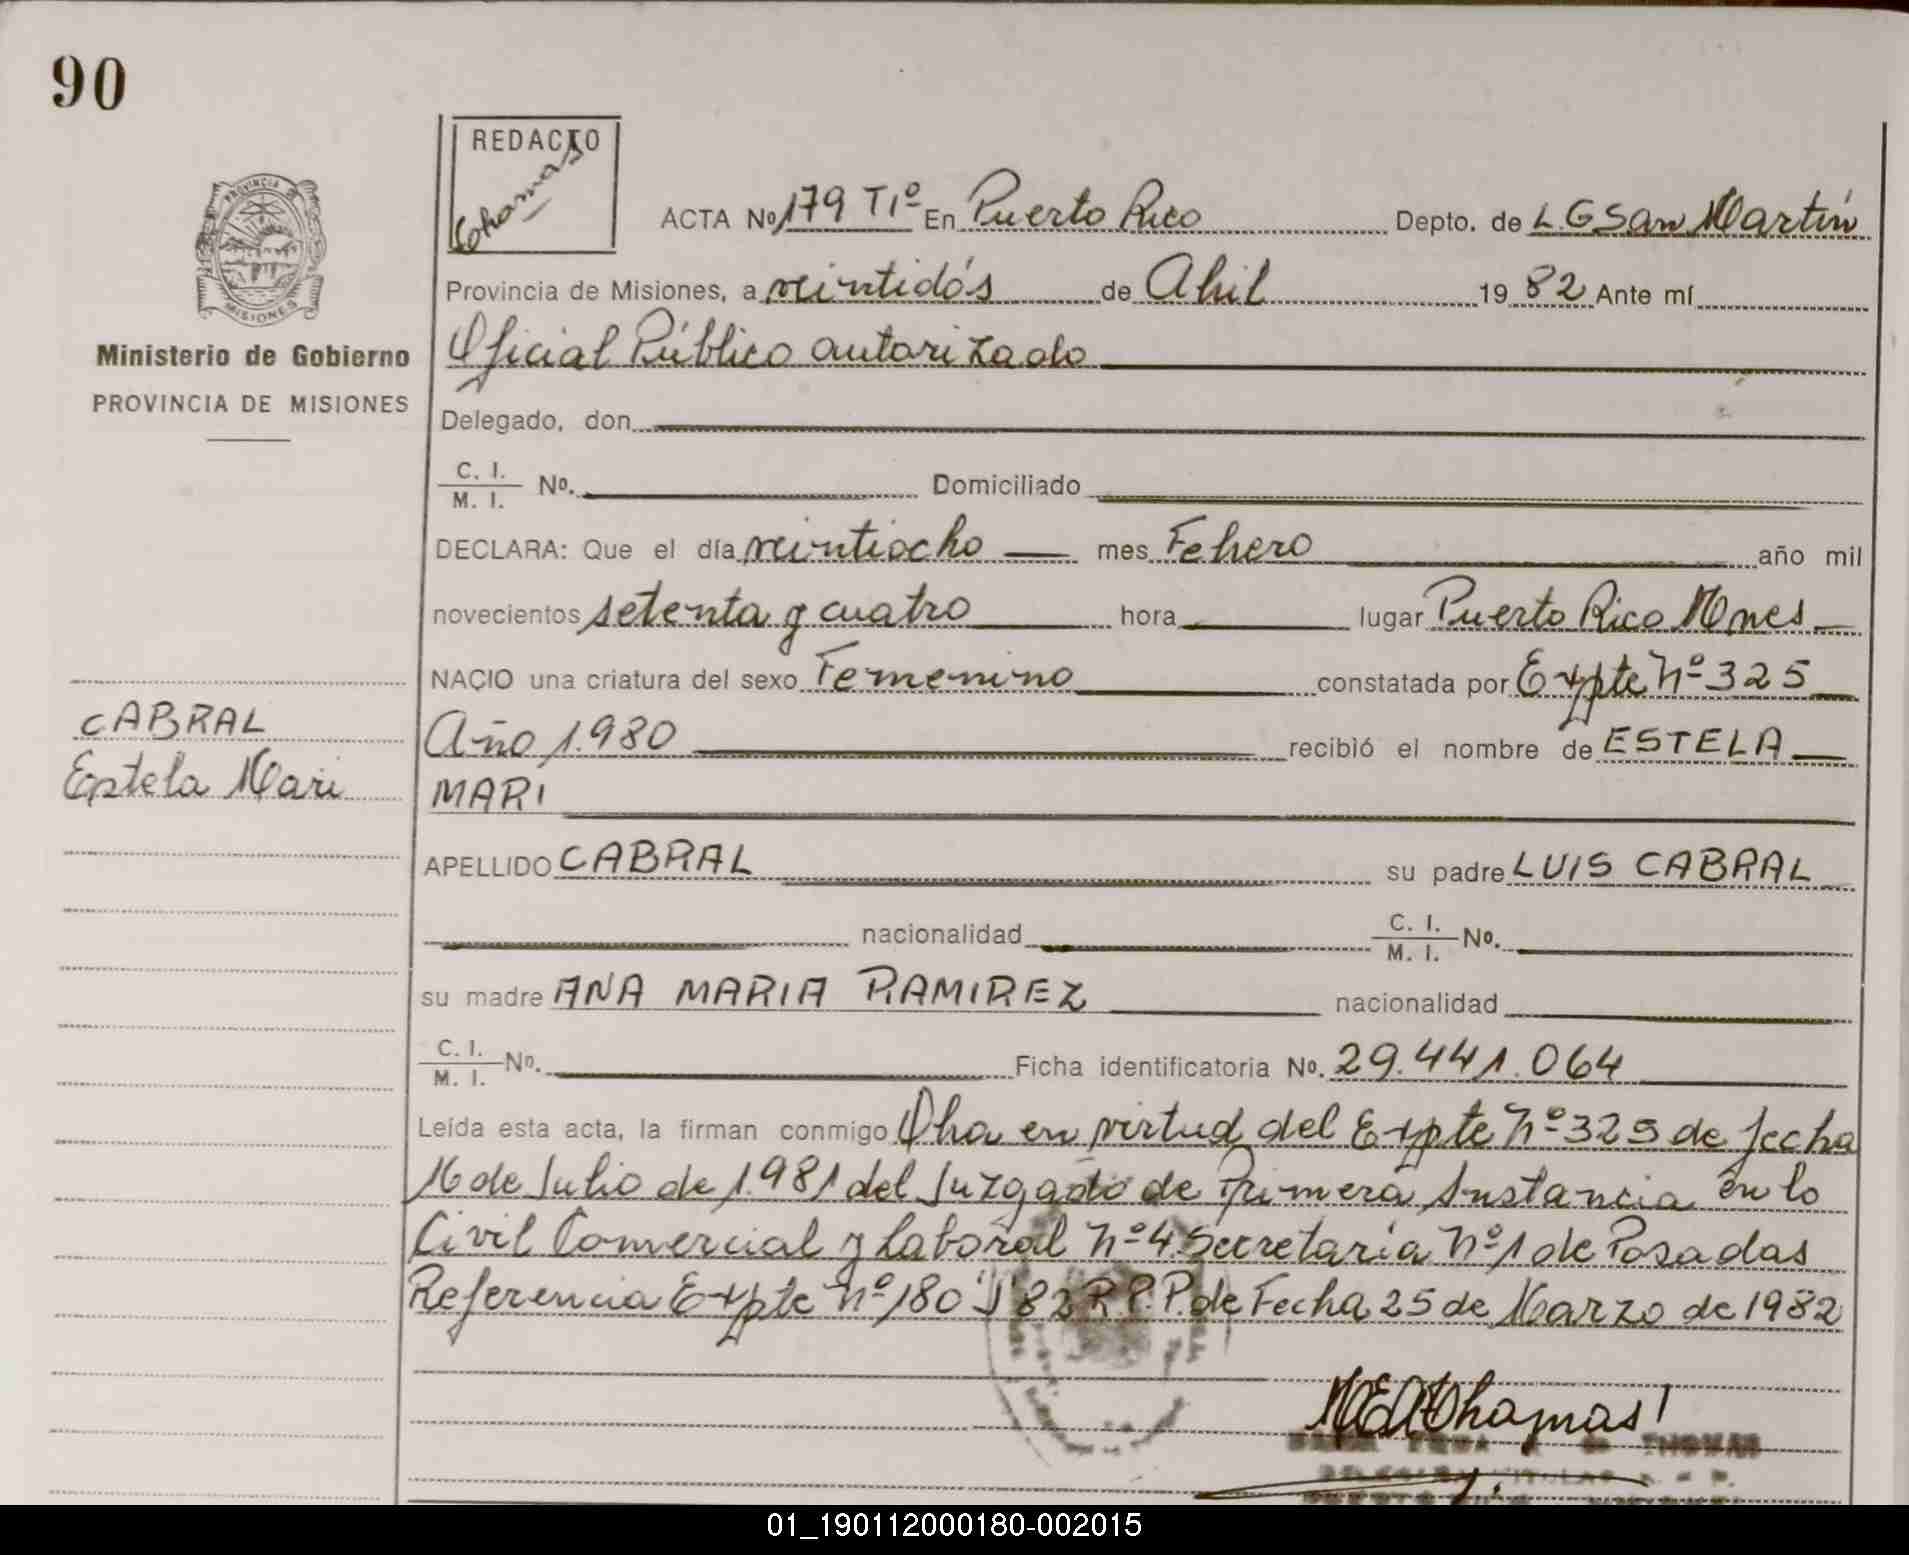 90
REDACTO
Thomas
ACTA Nº 179 T1º En Puerto Rico Depto. de L.G San Martín
PROVINCIA DE MISIONES
Provincia de Misiones, a veintidós de Abril 1982 Ante mí
Ministerio de Gobierno
PROVINCIA DE MISIONES
Oficial Público autorizado
Delegado, don
C. I. M. I. Nº. Domiciliado
DECLARA: Que el día veintiocho mes Febrero año mil
novecientos setenta y cuatro hora lugar Puerto Rico Mnes
NACIO una criatura del sexo Femenino constatada por Expte Nº 325
CABRAL
Estela Mari
Año 1.980 recibió el nombre de ESTELA
MARI
APELLIDO CABRAL su padre LUIS CABRAL
nacionalidad C. I. M. I. Nº.
su madre ANA MARIA RAMIREZ nacionalidad
C. I. M. I. Nº. Ficha identificatoria Nº. 29.441.064
Leída esta acta, la firman conmigo Obra en virtud del Expte Nº 325 de fecha
16 de Julio de 1.981 del Juzgado de Primera Instancia en lo
Civil Comercial y Laboral Nº 4 Secretaría Nº 1 de Posadas
Referencia Expte nº 180 82 R.P.P. de Fecha 25 de Marzo de 1982
THOMAS
01_190112000180-002015